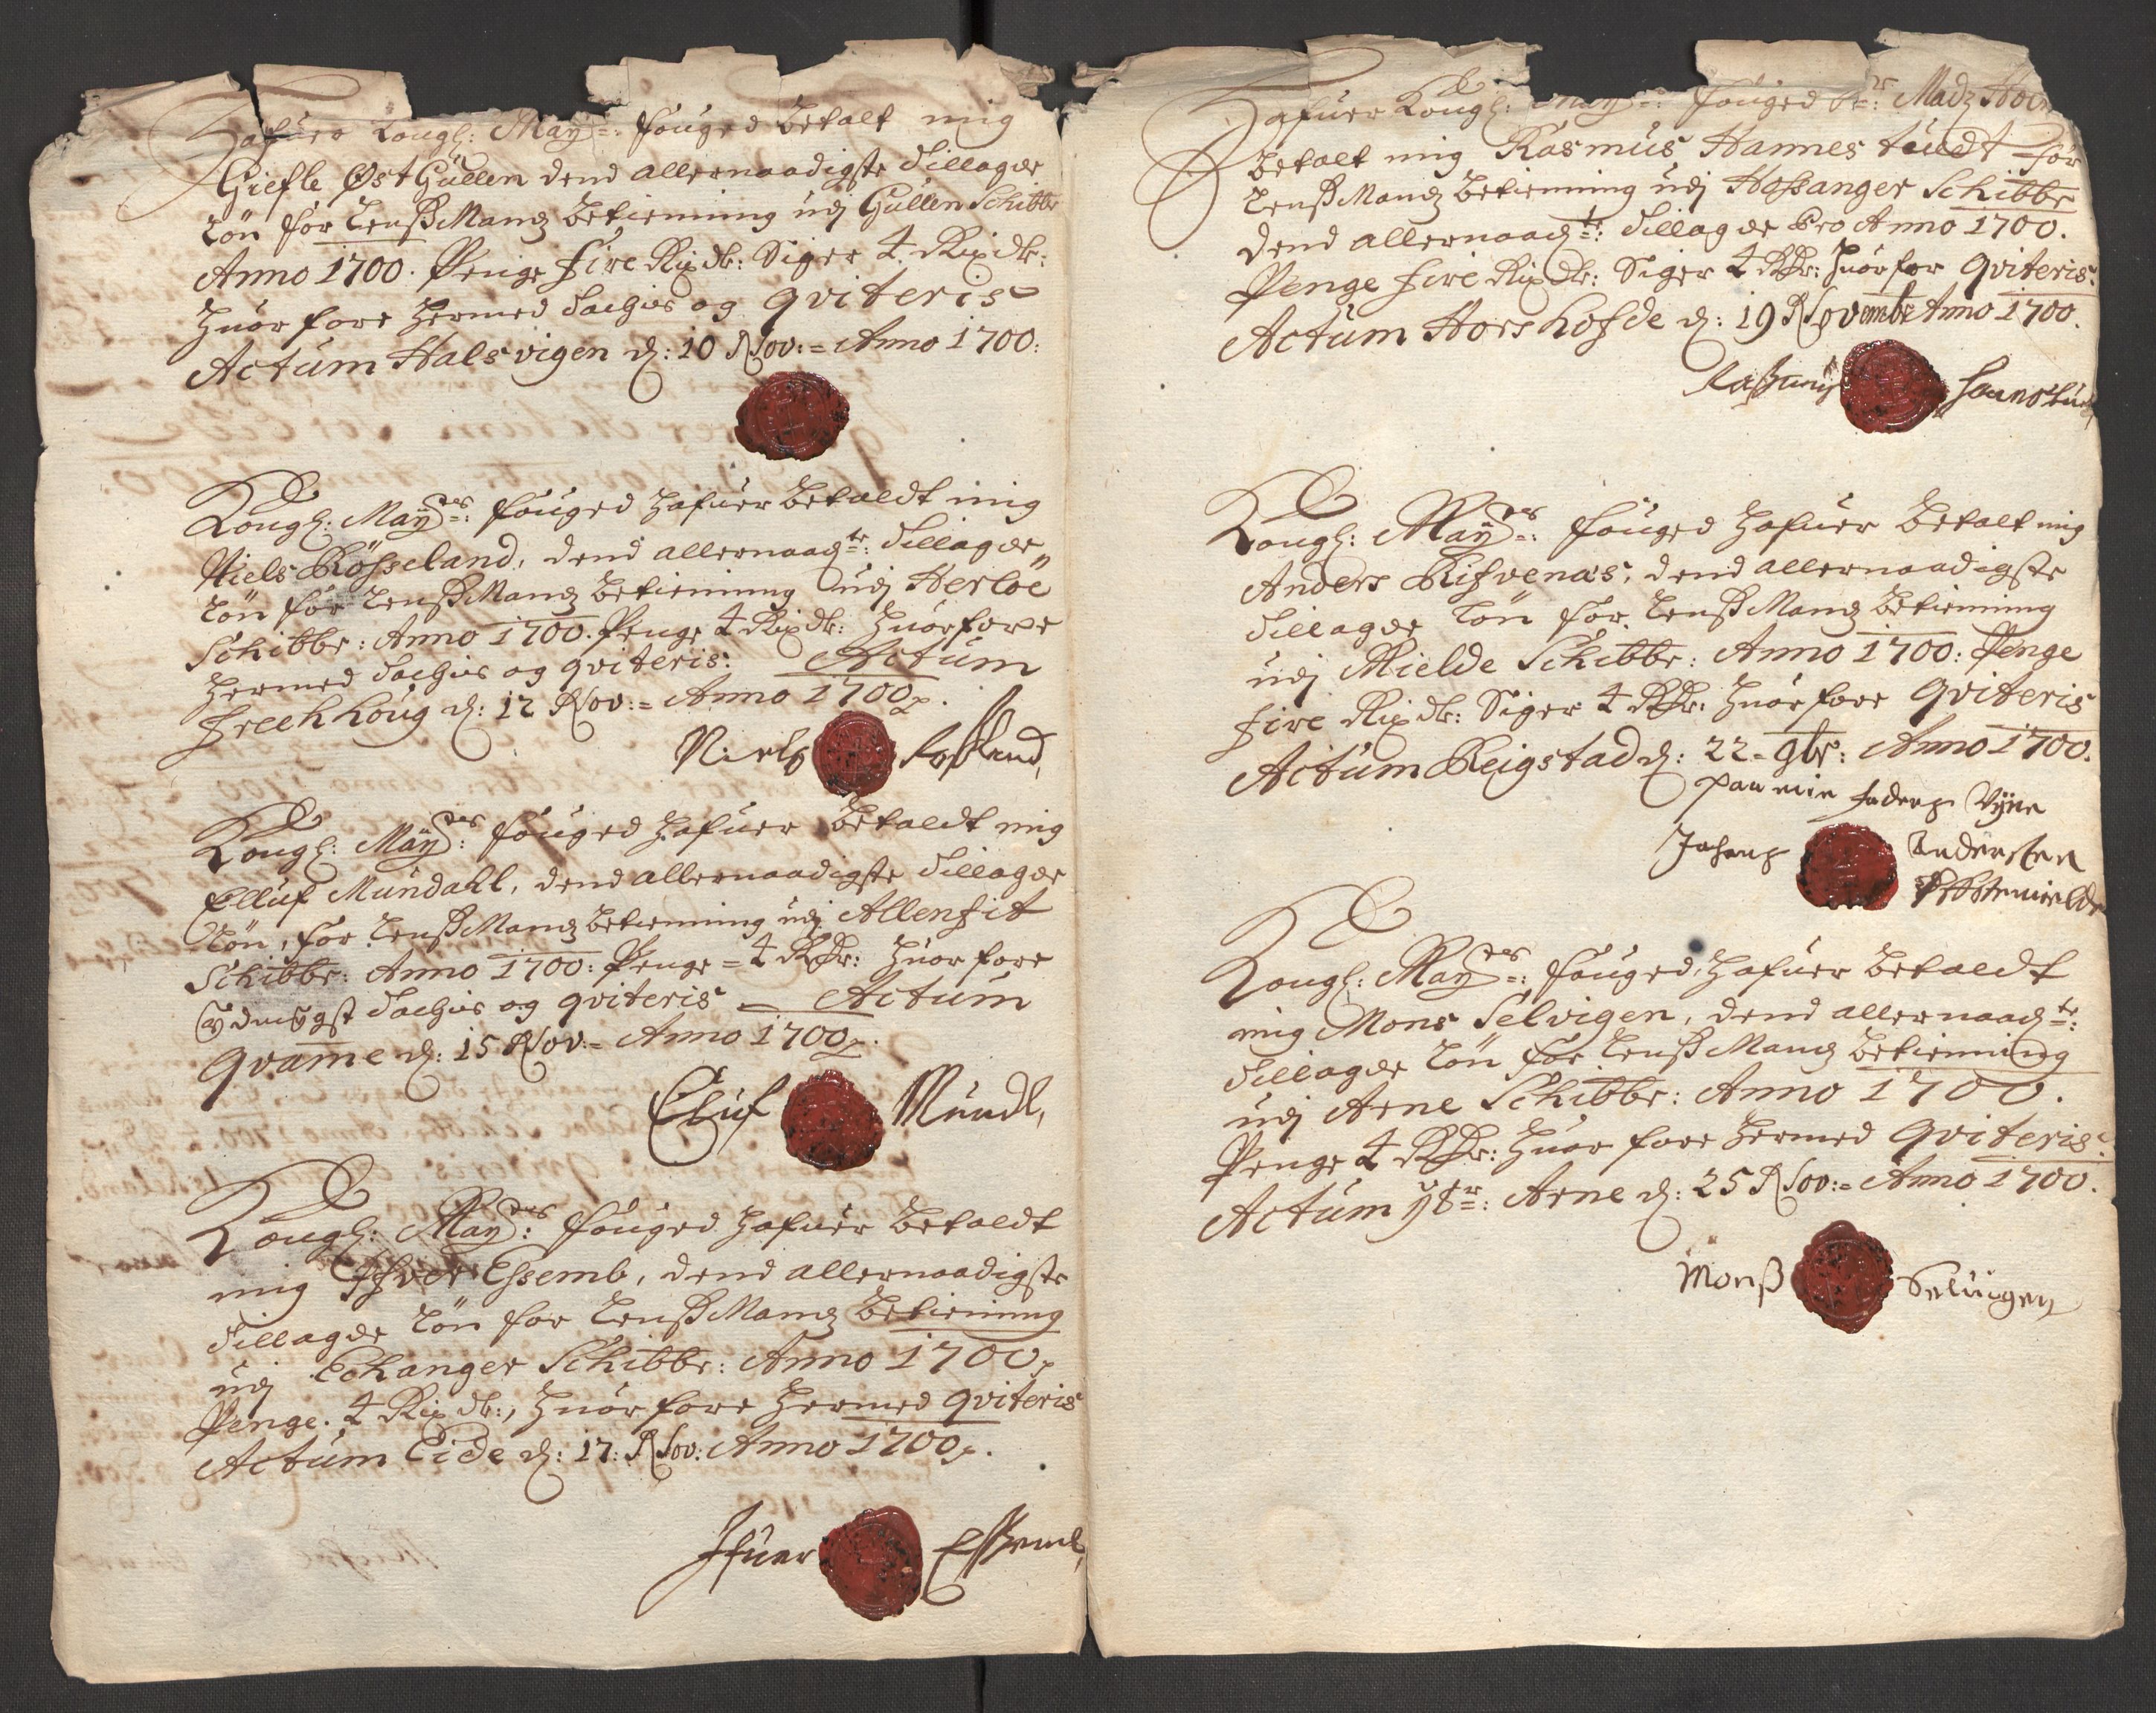 Hafuer Kongl: May=: fouged betalt mig
Giefle Øst Gullen dend allernaadigste tillagde
Lön for LenßMandz betienning udj Gullen Schibbr
Anno 1700. Penge fire Rixdr: Siger 4. Rixdr:
huorfore hermed tachis og qviteris
Actum Halsvigen d: 10 Nov:= Anno 1700:
Kongl: Mayes: fouged hafuer betaldt mig
Niels Rösseland, dend allernaadte: tillagde
Lön for LenßMandz betienning udj Herlöe
Schibbr: Anno 1700. Penge 4 Rixdr: huorfore
hermed tachis og qviteris. Actum
Frechhoug d: 12 Nov:= Anno 1700.
Niels Roßland,
Kongl: Mayes: fouged hafuer betaldt mig
Elluf Mundahl, dend allernaadigste tillagde
Lön, for LenßMandz betienning udj Allenfit
Schibbr: Anno 1700: Penge = 4 Rdr: huorfore
ydmygst tachis og qviteris Actum
Qvamme d: 15 Nov:= Anno 1700.
Eluf Mundl,
Kongl: Mayes: fouged hafuer betaldt
mig Ifver Essemb, dend allernaadigste
tillagde Lön for LenßMandz betienning
udj Echanger Schibbr: Anno 1700
Penge. 4 Rixdr:, huorfore hermed qviteris
Actum Eide d: 17: Nov: Anno 1700.
Ifuer Eßeml,
Hafuer Kongl: May=: fouged Sr: Madz
betalt mig Rasmus Hannestuedt for
LenßMandz betienning udj Hossanger Schibbr
dend allernaadte: tillagde Pro Anno 1700.
Penge fire Rixdr: Siger 4 Rdr: huorfor qviteris.
Actum Horshofde d: 19 Novembr Anno 1700.
Raßmus Hanstued
Kongl: Mayes=: fouged hafuer betalt mig
Anders Rifvenæs, dend allernaadigste
tillagde Lön for LenßMandz betienning
udj Mielde Schibbr: Anno 1700: Penge
fire Rixdr: Siger 4 Rdr: huorfore qviteris
Actum Reigstad d: 22=9br: Anno 1700.
paa min faders Vegne
Johans Andersen

Kongl: Mayes=: fouged, hafuer betaldt
mig Mons Selvigen, dend allernaadte:
tillagde Lön for LenßMandz betienning
udj Arne Schibbr: Anno 1700.
Penge 4 Rdr: huor fore hermed qviteris.
Actum ytr=: Arne d: 25 Nov:= Anno 1700.
Monß Seluigen